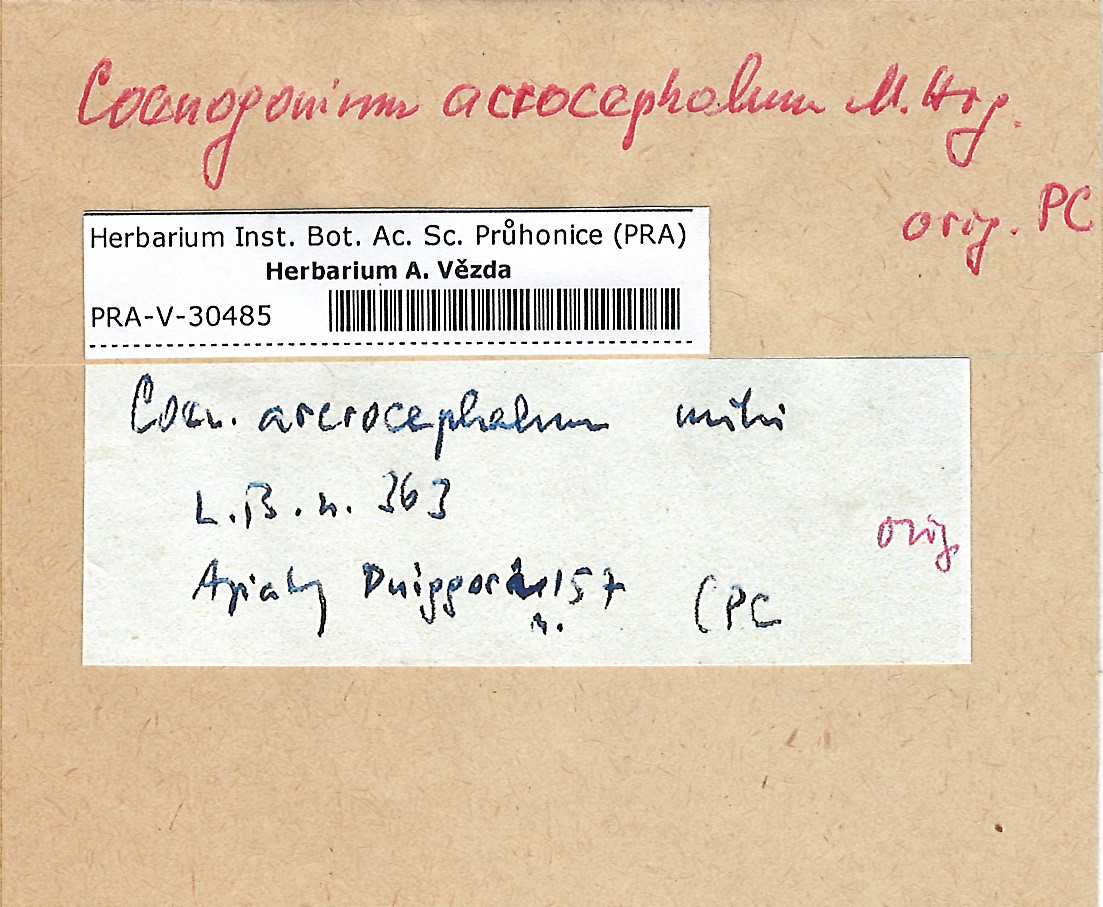 Coenogonium acrocephalum M. Arg.
orig. PC
Herbarium Inst. Bot. Ac. Sc. Průhonice (PRA)
Herbarium A. Vězda
PRA-V-30485
Coen. acrocephalum mihi
L.B. n. 363
orig
Apiahy Puiggari n. 157 (PC